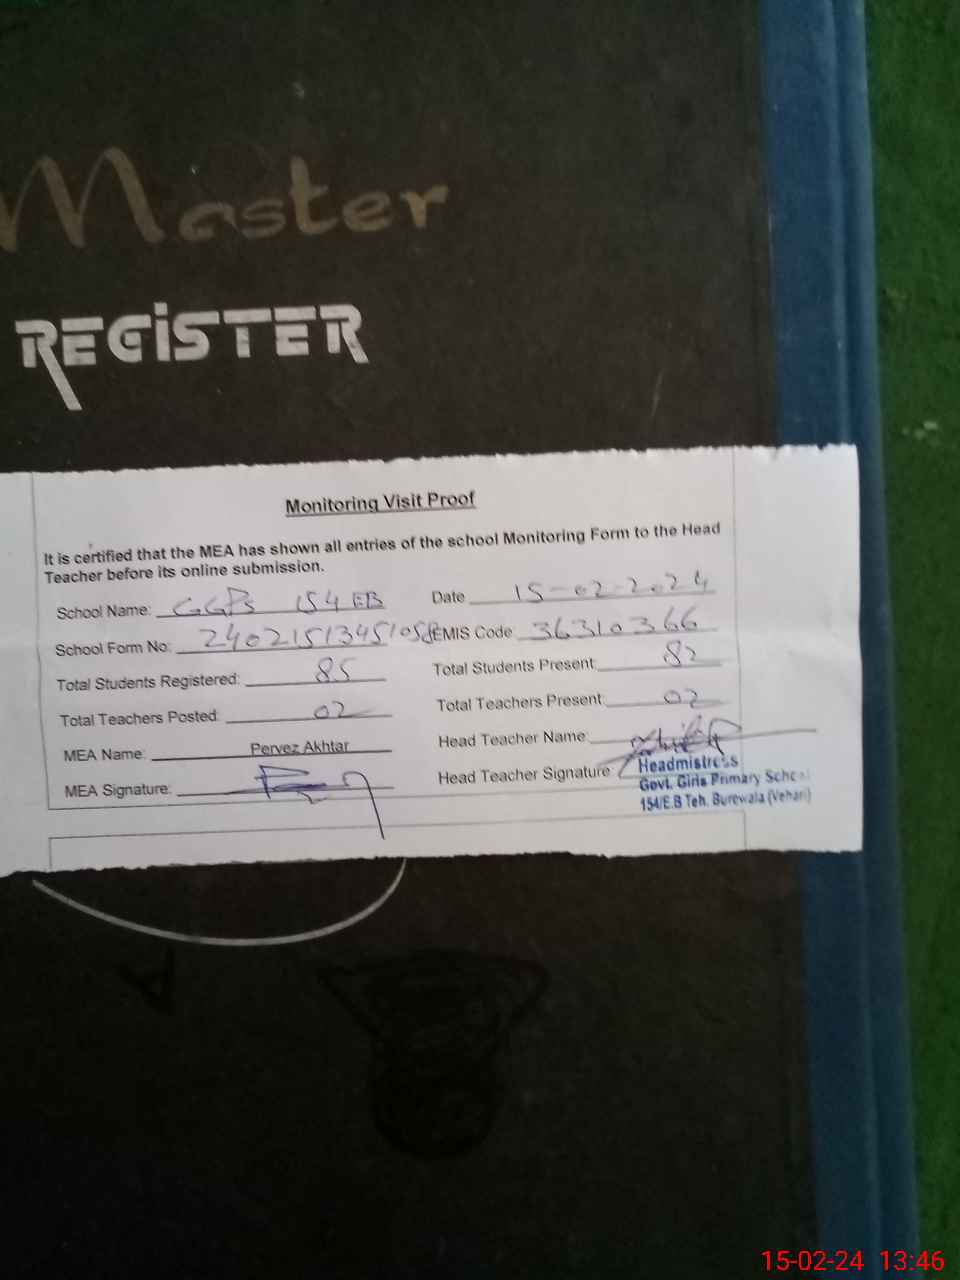 Master
REGiSTER
Monitoring Visit Proof
It is certified that the MEA has shown all entries of the school Monitoring Form to the Head
Teacher before its online submission.
School Name: GGPS 154 EB Date 15-02-2024
School Form No: 24021513451058 EMIS Code: 36310366
Total Students Registered: 85 Total Students Present: 82
Total Teachers Posted: 02 Total Teachers Present: 02
MEA Name: Pervez Akhtar Head Teacher Name:
MEA Signature: Head Teacher Signature:
Headmistress
Govt. Girls Primary School
154/E.B Teh. Burewala (Vehari)
15-02-24 13:46